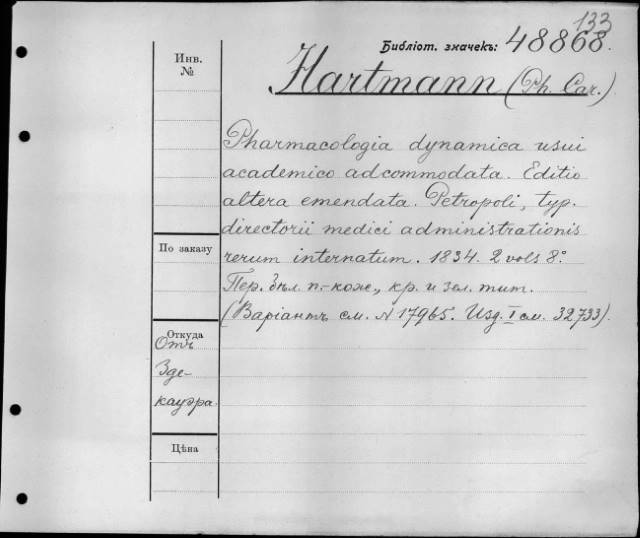 133
Библіот. значекъ: 48868.
Инв.
№
Hartmann (Ph. Car.)
Pharmacologia dynamica usui
academico adcommodata. Editio
altera emendata. Petropoli, typ.
directorii medici administrationis
По заказу
rerum internatum. 1834. 2 vols 8°.
Пер. бѣл. п.-кож., кр. и зел. тит.
(Варіантъ см. № 17965. Изд. I см. 32733).
Откуда
Отъ
Зде-
кауэра.
Цѣна